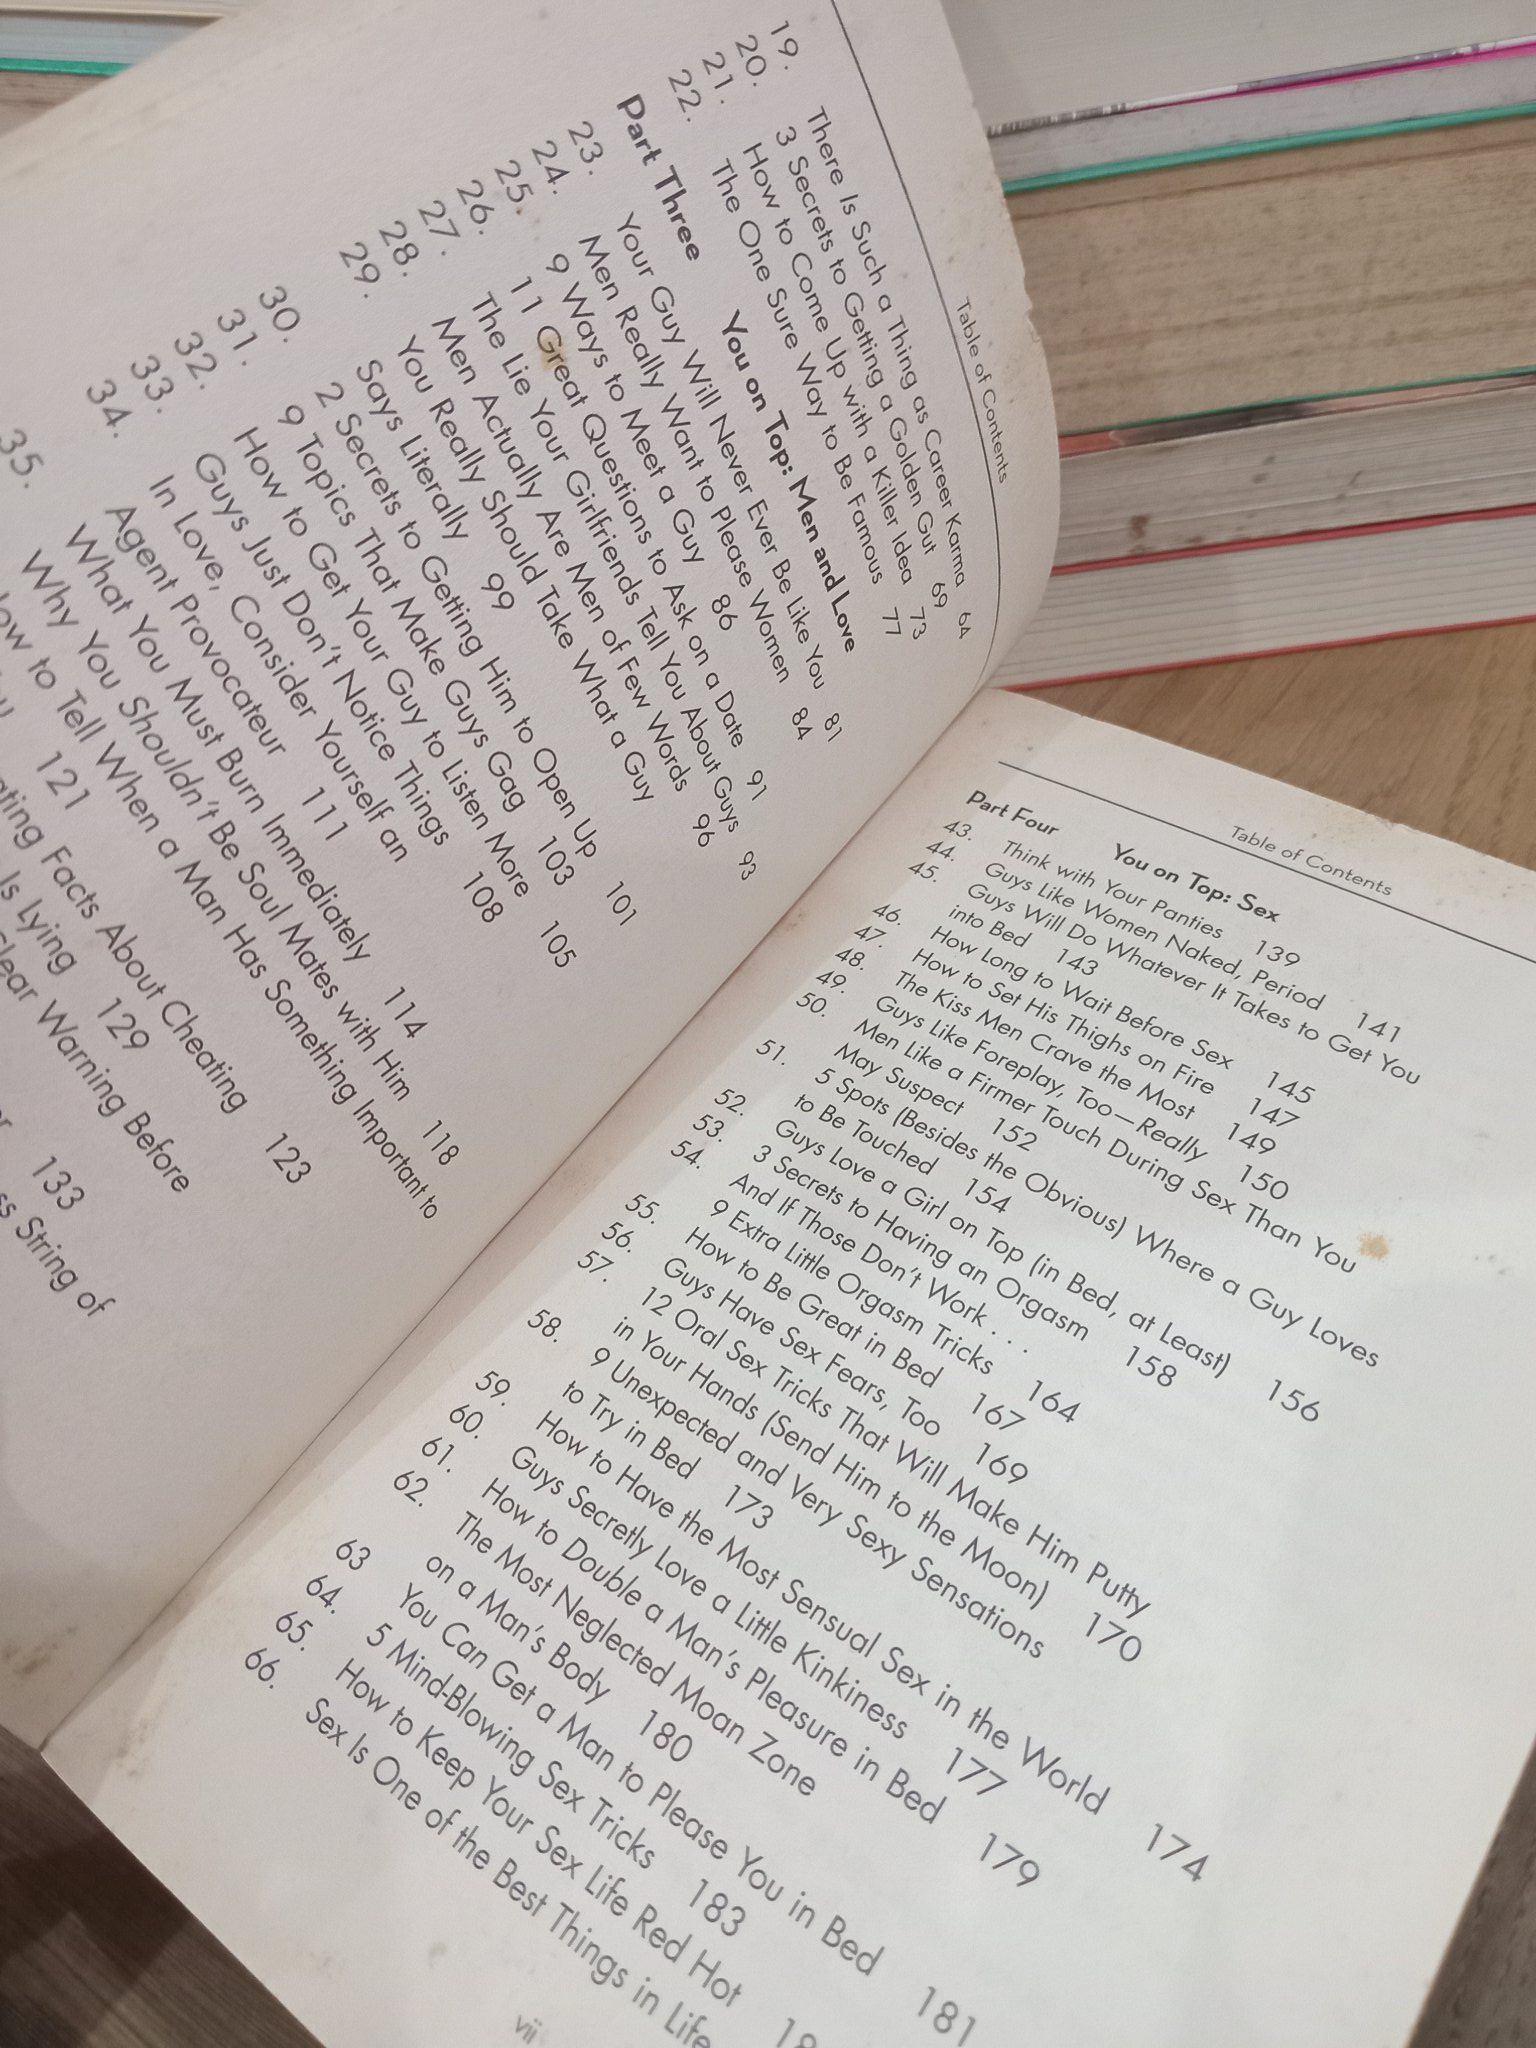 Table of Contents
19. There Is Such a Thing as Career Karma 64
20. 3 Secrets to Getting a Golden Gut 69
21. How to Come Up with a Killer Idea 73
22. The One Sure Way to Be Famous 77
Part Three You on Top: Men and Love
23. Your Guy Will Never Ever Be Like You 81
24. Men Really Want to Please Women 84
25. 9 Ways to Meet a Guy 86
26. 11 Great Questions to Ask on a Date 91
27. The Lie Your Girlfriends Tell You About Guys 93
28. Men Actually Are Men of Few Words 96
29. You Really Should Take What a Guy
Says Literally 99
30. 2 Secrets to Getting Him to Open Up 101
31. 9 Topics That Make Guys Gag 103
32. How to Get Your Guy to Listen More 105
33. Guys Just Don't Notice Things 108
34. In Love, Consider Yourself an
Agent Provocateur 111
35. What You Must Burn Immediately 114
Why You Shouldn't Be Soul Mates with Him 118
to Tell When a Man Has Something Important to
121
Facts About Cheating 123
Is Lying 129
Warning Before
133
String of
Table of Contents
Part Four You on Top: Sex
43. Think with Your Panties 139
44. Guys Like Women Naked, Period 141
45. Guys Will Do Whatever It Takes to Get You
into Bed 143
46. How Long to Wait Before Sex 145
47. How to Set His Thighs on Fire 147
48. The Kiss Men Crave the Most 149
49. Guys Like Foreplay, Too—Really 150
50. Men Like a Firmer Touch During Sex Than You
May Suspect 152
51. 5 Spots (Besides the Obvious) Where a Guy Loves
to Be Touched 154
52. Guys Love a Girl on Top (in Bed, at Least) 156
53. 3 Secrets to Having an Orgasm 158
54. And If Those Don't Work . . .
9 Extra Little Orgasm Tricks 164
55. How to Be Great in Bed 167
56. Guys Have Sex Fears, Too 169
57. 12 Oral Sex Tricks That Will Make Him Putty
in Your Hands (Send Him to the Moon) 170
58. 9 Unexpected and Very Sexy Sensations
to Try in Bed 173
59. How to Have the Most Sensual Sex in the World 174
60. Guys Secretly Love a Little Kinkiness 177
61. How to Double a Man's Pleasure in Bed 179
62. The Most Neglected Moan Zone
on a Man's Body 180
63 You Can Get a Man to Please You in Bed 181
64. 5 Mind-Blowing Sex Tricks 183
65. How to Keep Your Sex Life Red Hot
66. Sex Is One of the Best Things in Life
vii